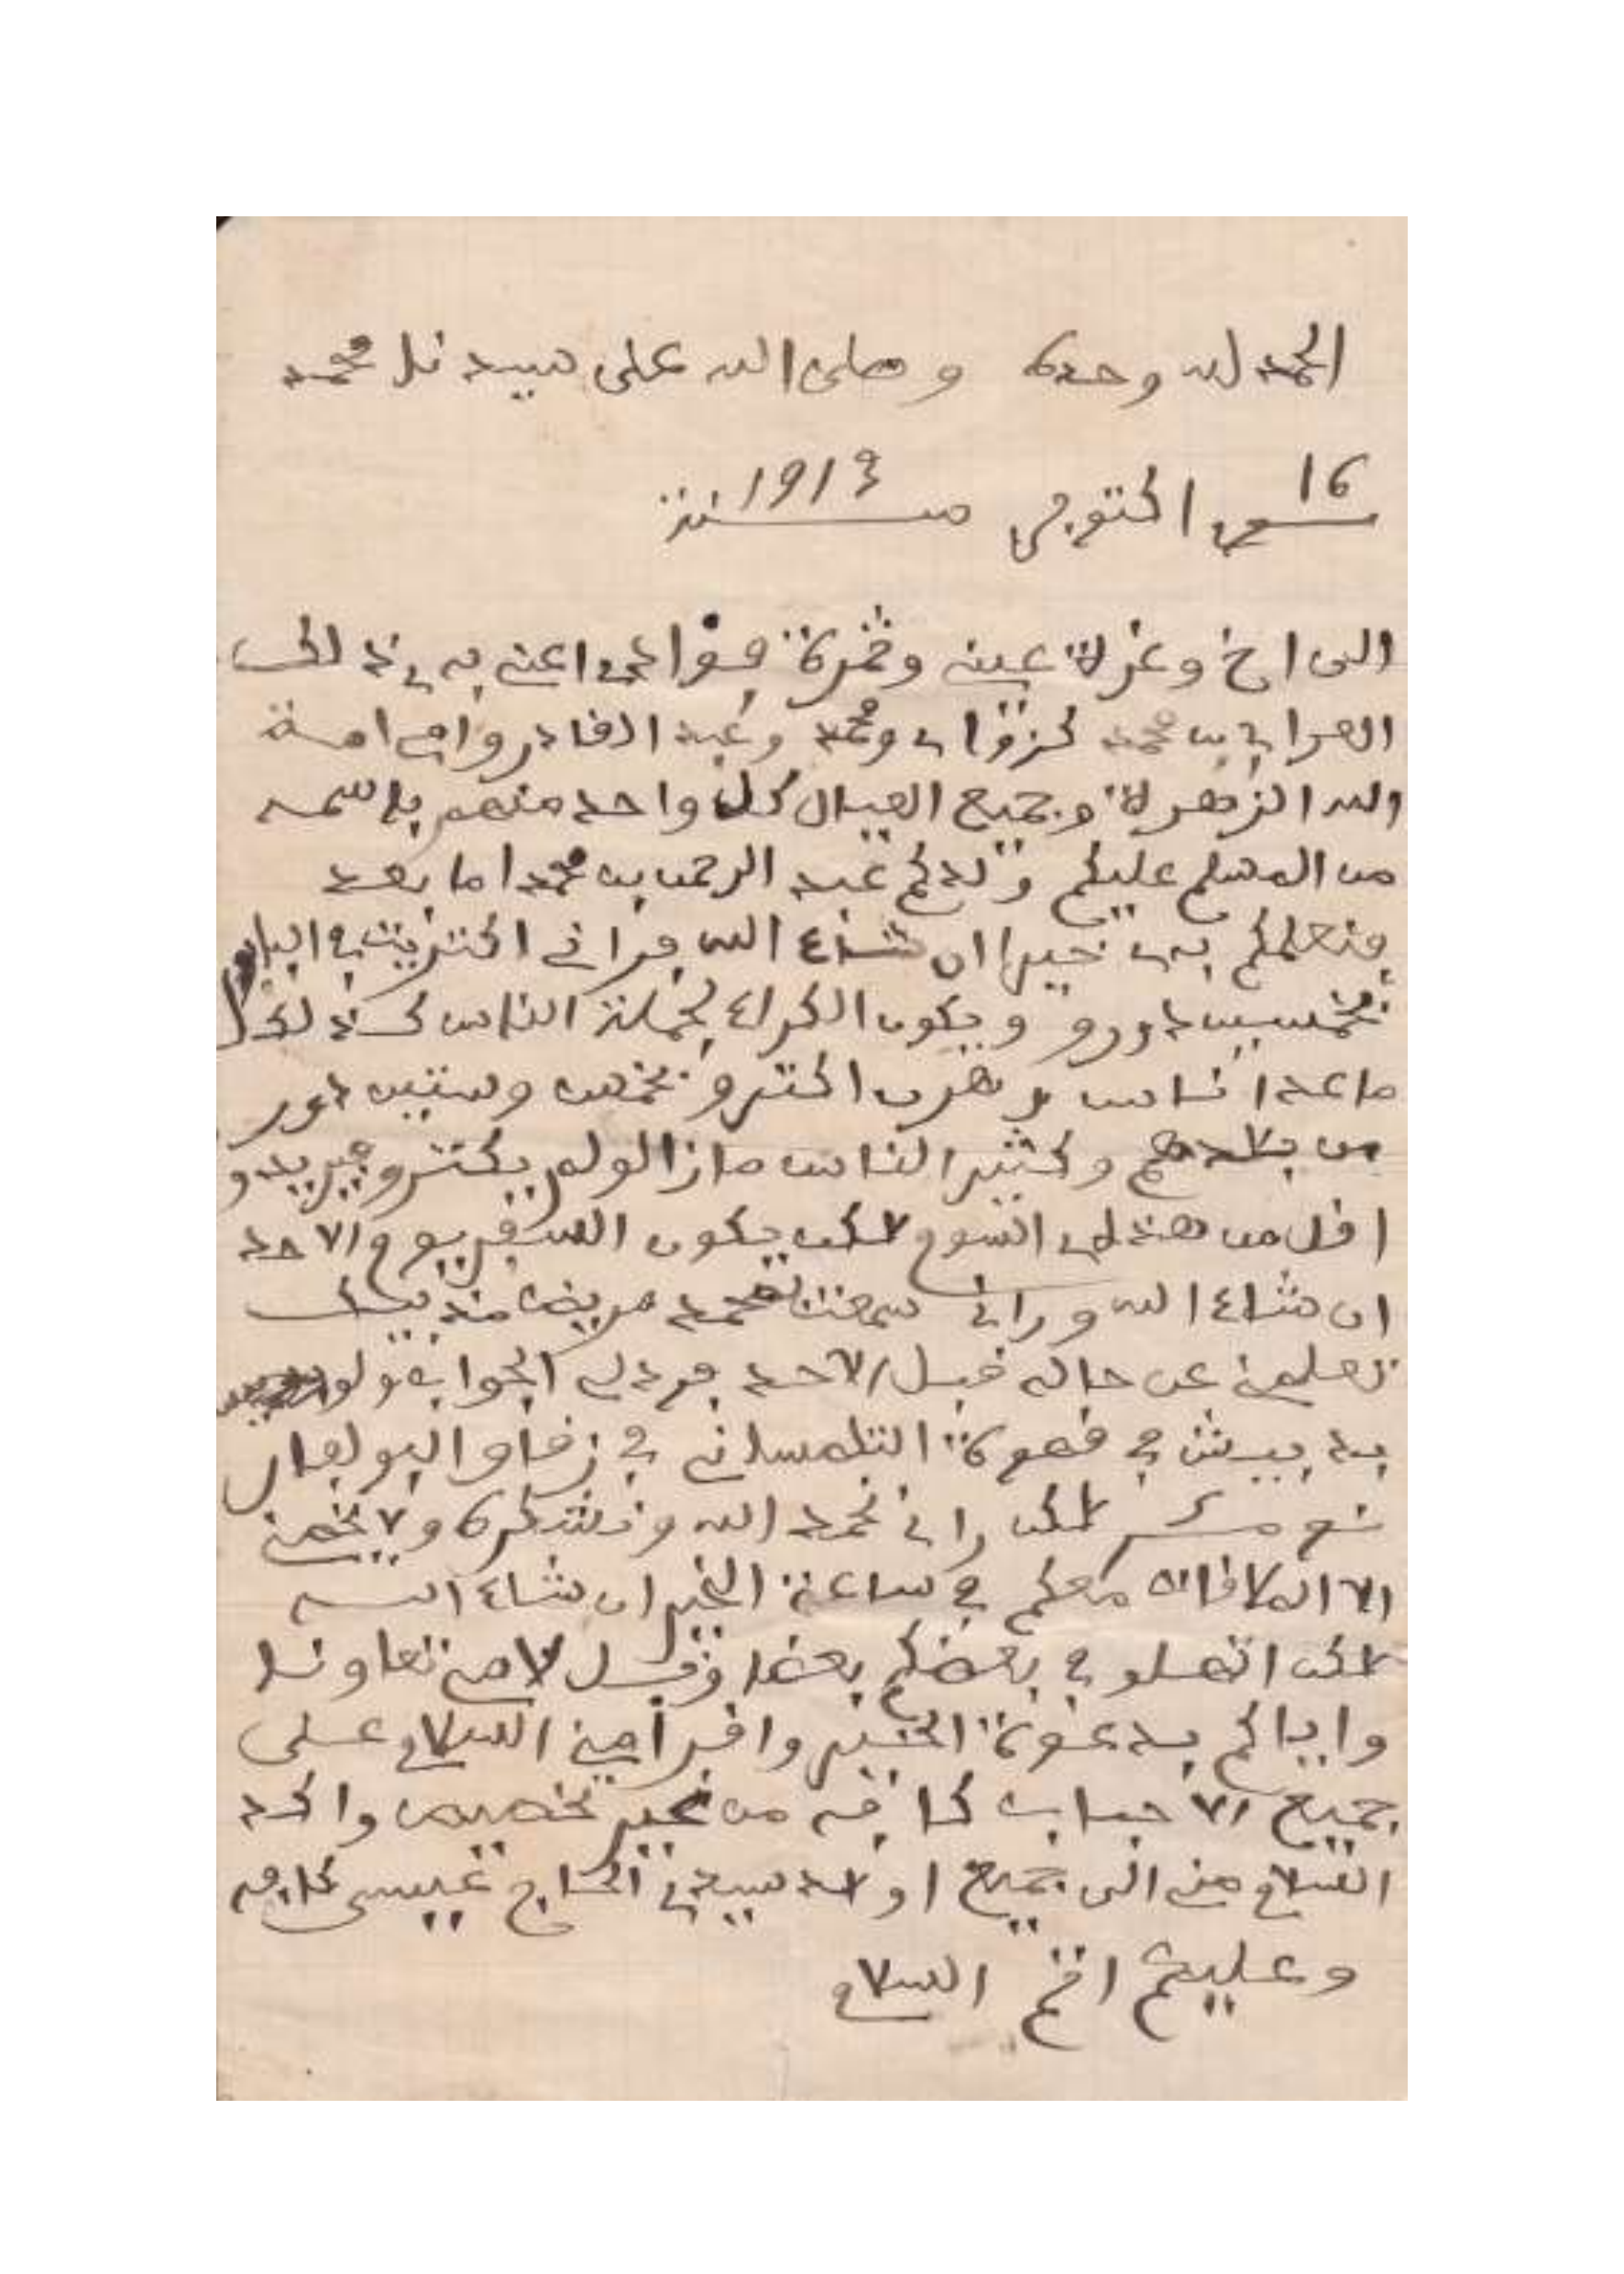 الحمد لله وحده وصلى الله على سيدنا محمد
16 اكتوبر سنة 1913
الى اخ وغرة عينه وثمرة فؤادي اعني به
العرابي بن محمد ومحمد وعبد الفادر وامي امة
الله الزهرة وجميع العيال كل واحد منهم باسمه
من المسلم عليكم ولدكم عبد الرحمن بن محمد اما بعد
فنعلمكم به خيرا ان شاء الله فراني اكتريت في البابور
بخمسين دورو ويكون الكراء لجملة الناس كذلك
ما عدا اناس اكترو بخمس وستين دورو
من بلادهم وكثير الناس مازالو لم يكترو يريدو
افل من هذا لاكن يكون السفر يوم الاحد
ان شاء الله وراني سمعت محمد مريض
تعلمني عن حاله فبل الاحد بردلي الجواب ولو
في فهوة التلمساني في زفاو البولفار
لاكن راني نحمد الله ونشكره ولا يخصني
الا الملافات معكم في ساعة الخير ان شاء الله
لاكن اتهلو في بعضكم بعضا وفل لامي تعاونا
واياكم بدعوة الخير وافرأ مني السلام على
جميع الاحباب كافه من غير تخصيص واكد
السلام مني الى جميع اولاد سيدي الحاج عيسى كافه
وعليكم اتم السلام